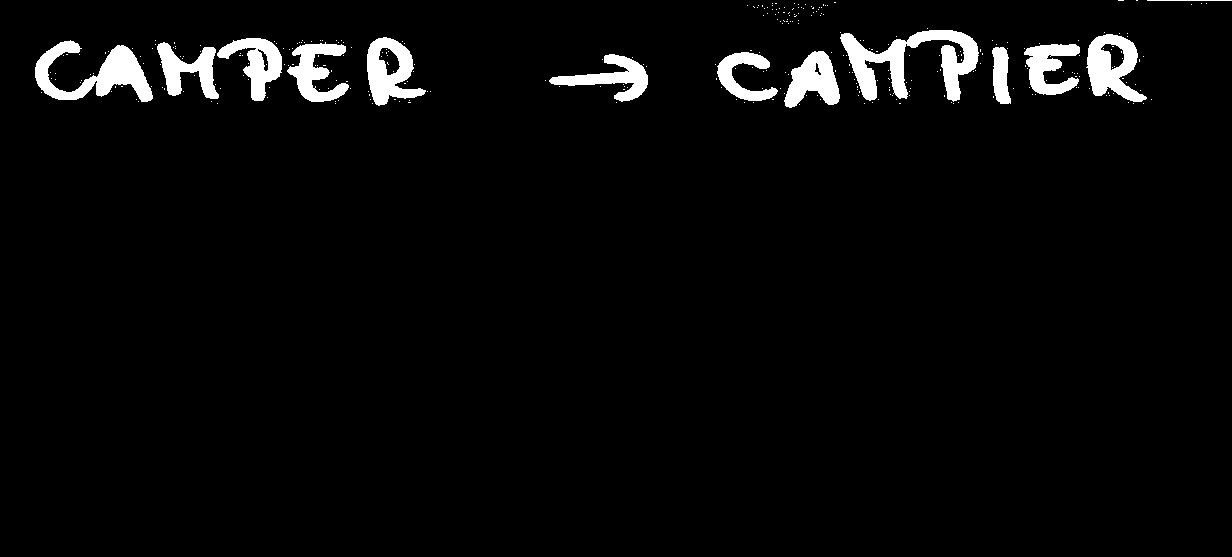 CAMPER → CAMPIER